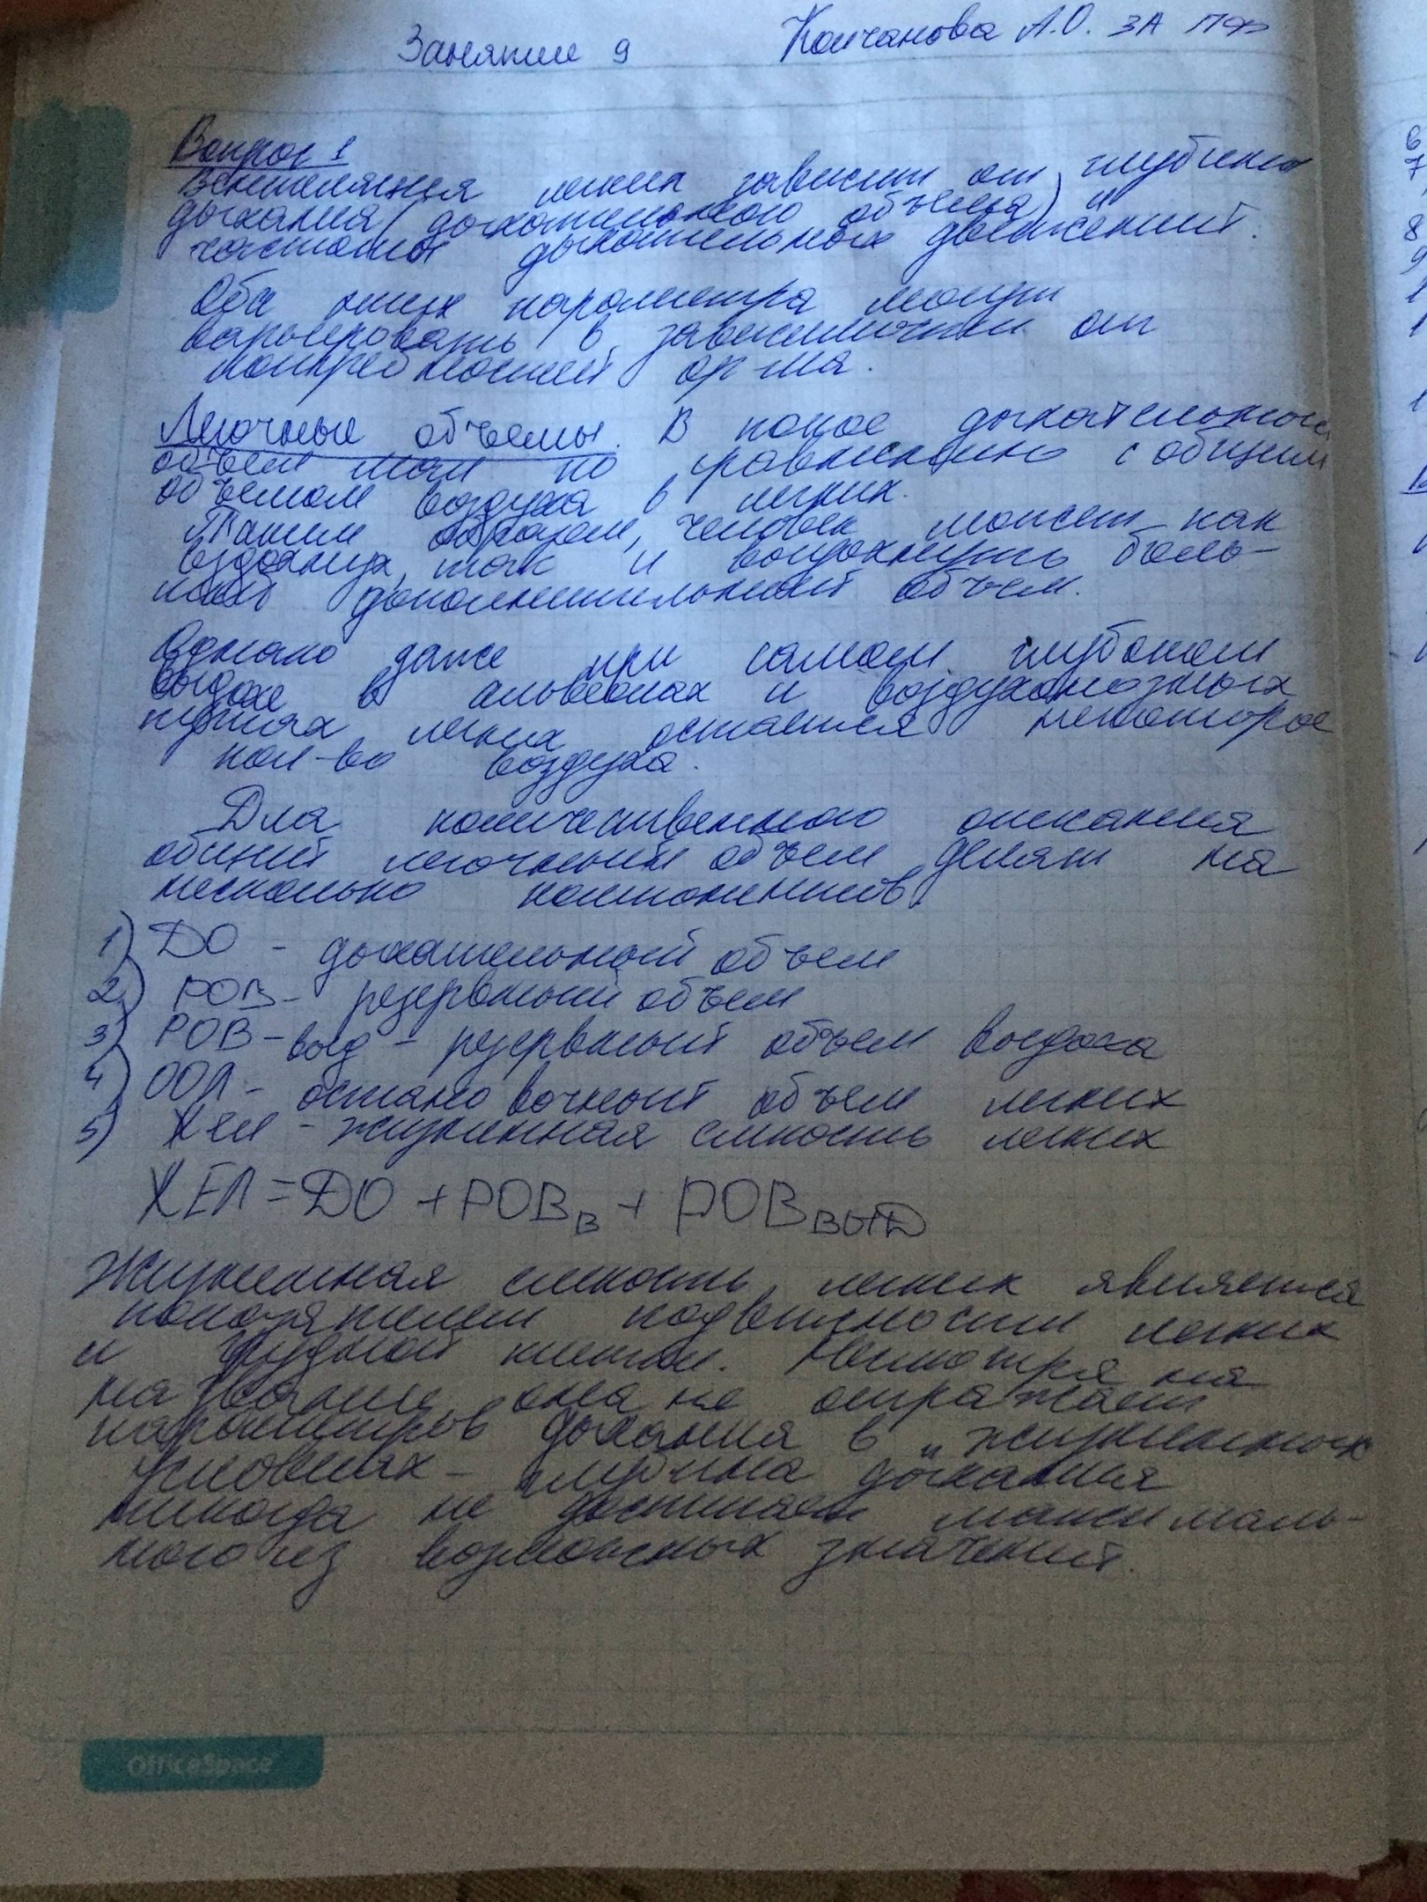 Занятие 9 Колчанова А.О. 3А ПФ
Вопрос 1
Вентиляция легких зависит от глубины
дыхания (дыхательного объема) и
частоты дыхательных движений.
Оба этих параметра могут
варьировать в зависимости от
потребностей орг-ма.
Легочные объемы. В покое дыхательный
объем мал по сравнению с общим
объемом воздуха в легких.
Таким образом, человек может как
вздохнуть, так и выдохнуть боль-
шой дополнительный объем.
Однако даже при самом глубоком
выдохе в альвеолах и воздухоносных
путях легких остается некоторое
кол-во воздуха.
Для количественного описания
общий легочный объем делят на
несколько компонентов
1) ДО - дыхательный объем
2) РОВ - резервный объем
3) РОВ-выд - резервный объем выдоха
4) ООЛ - остановочный объем легких
5) ЖЕЛ - жизненная емкость легких
ЖЕЛ = ДО + РОВв + РОВвыд
Жизненная емкость легких является
показателем подвижности легких
и грудной клетки. Несмотря на
название она не отражает
параметров дыхания в "жизненных
условиях - глубина дыхания
никогда не достигает максималь-
ного из возможных значений.
OfficeSpace